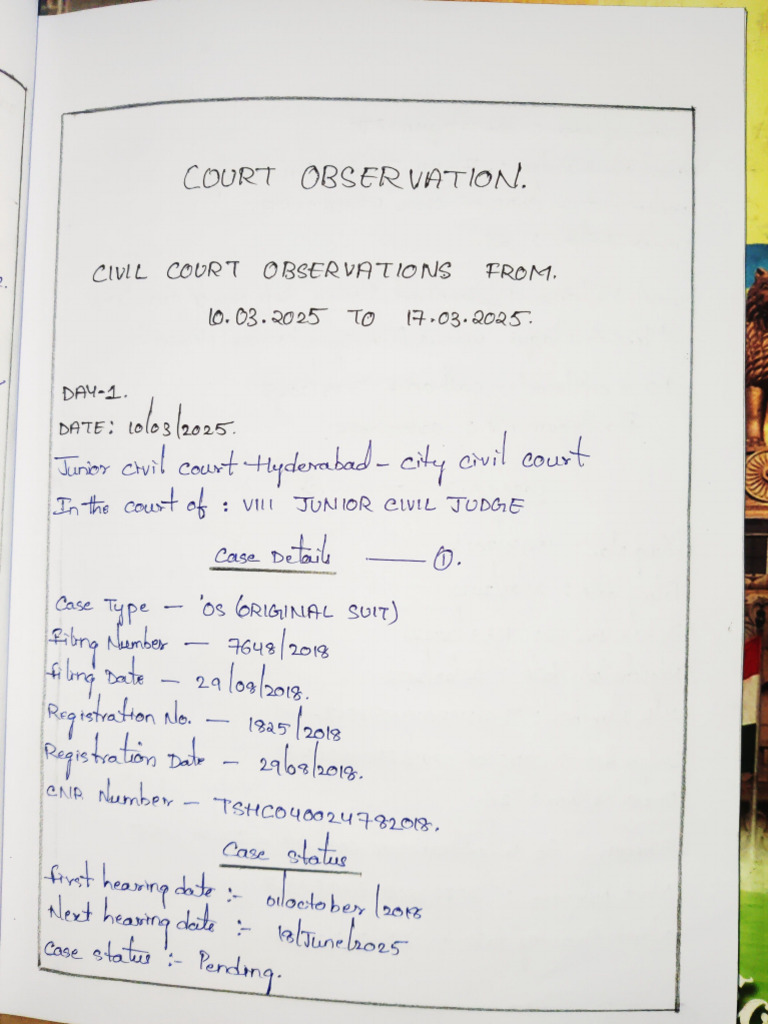 COURT OBSERVATION.
CIVIL COURT OBSERVATIONS FROM.
10.03.2025 TO 17.03.2025.
DAY-1.
DATE: 10/03/2025.
Junior civil court Hyderabad - city civil court
In the court of : VIII JUNIOR CIVIL JUDGE
Case Details —— ①.
Case Type — OS (ORIGINAL SUIT)
Filing Number — 7648/2018
filing Date — 29/08/2018.
Registration No. — 1825/2018
Registration Date — 29/08/2018.
CNR Number — TSHC040024782018.
Case status
first hearing date :- 01/october/2018
Next hearing date :- 18/June/2025
Case status :- Pending.